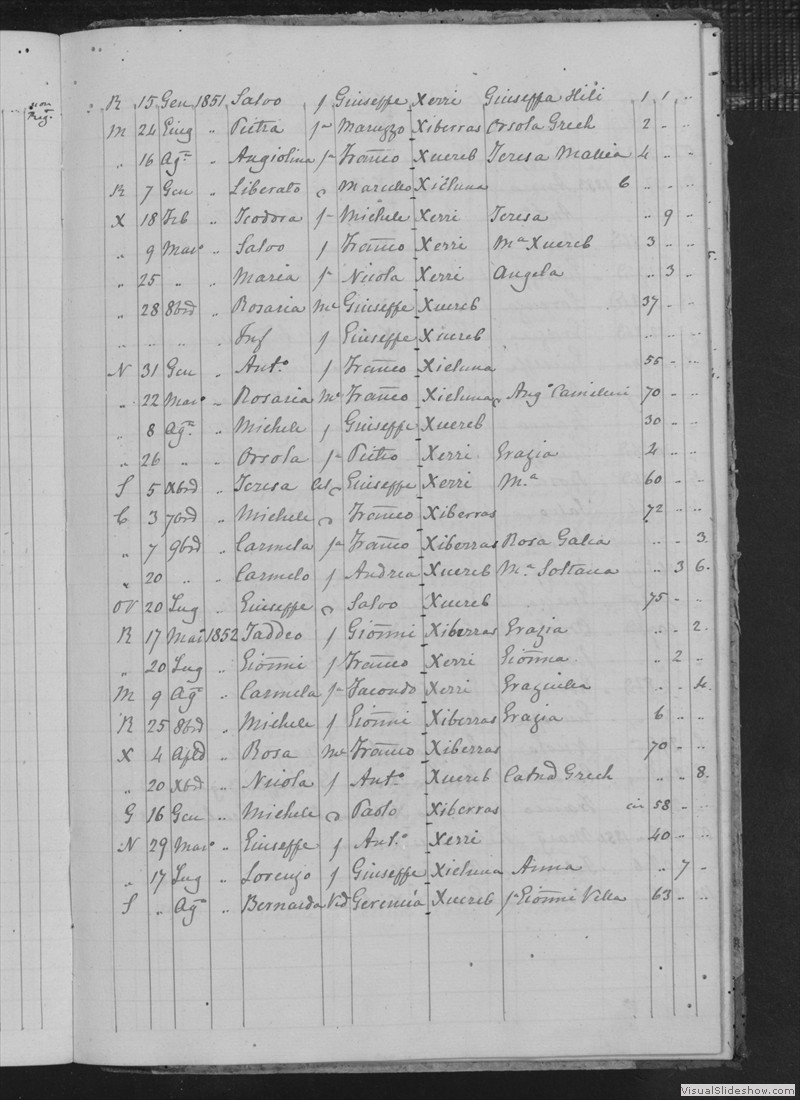 non
Reg.
R 15 Gen 1851 Salvo f Giuseppe Xerri Giuseppa Hili 1 1 ..
M 24 Giug .. Pietra fa Maruzzo Xiberras Orsola Grech 2 .. ..
.. 16 Ago .. Angiolina fa Franco Xuereb Teresa Mallia 4 .. ..
R 7 Gen .. Liberato Marcello Xicluna 6 .. ..
X 18 Feb .. Teodora fa Michele Xerri Teresa .. 9 ..
.. 9 Maro .. Salvo f Franco Xerri Ma Xuereb 3 .. ..
.. 25 .. .. Maria fa Nicola Xerri Angela .. 3 ..
.. 28 8bre .. Rosaria me Giuseppe Xuereb 37 .. ..
.. .. .. .. Inf f Giuseppe Xuereb .. .. ..
N 31 Gen .. Anto f Franco Xicluna 55 .. ..
.. 22 Maro .. Rosaria Me Franco Xicluna Ango Camilleri 70 .. ..
.. 8 Ago .. Michele f Giuseppe Xuereb 30 .. ..
.. 26 .. .. Orsola fa Pietro Xerri Grazia 2 .. ..
S 5 Xbre .. Teresa Giuseppe Xerri Ma 60 .. ..
C 3 7bre .. Michele Franco Xiberras 72 .. ..
.. 7 9bre .. Carmela fa Franco Xiberras Rosa Galea .. .. 3
.. 20 .. .. Carmelo f Andrea Xuereb Ma Soltana .. 3 6
OV 20 Lug .. Giuseppe Salvo Xuereb 75 .. ..
R 17 Mar 1852 Taddeo f Gionni Xiberras Grazia .. .. 2
.. 20 Lug .. Gionni f Franco Xerri Gionna .. 2 ..
M 9 Ago .. Carmela fa Facondo Xerri Graziulla .. .. 4
R 25 8bre .. Michele f Gionni Xiberras Grazia 6 .. ..
X 4 Aple .. Rosa Me Franco Xiberras 70 .. ..
.. 20 Xbre .. Nicola f Anto Xuereb Catna Grech .. .. 8
G 16 Gen .. Michele Paolo Xiberras 58 .. ..
N 29 Maro .. Giuseppe f Anto Xerri 40 .. ..
.. 17 Lug .. Lorenzo f Giuseppe Xicluna Anna .. 7 ..
S .. Ago .. Bernarda Vid Geremia Xuereb fa Gionni Vella 63 .. ..
VisualSlideshow.com